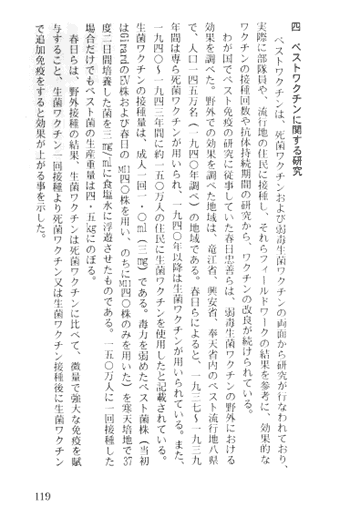 四　ペストワクチンに関する研究
　ペストワクチンは、死菌ワクチンおよび弱毒生菌ワクチンの両面から研究が行なわれており、
実際に部隊員や、流行地の住民に接種し、それらフィールドワークの結果を参考に、効果的な
ワクチンの接種回数や抗体持続期間の研究から、ワクチンの改良が続けられている。
　わが国でペスト免疫の研究に従事していた春日忠善らは、弱毒生菌ワクチンの野外における
効果を調べた。野外での効果を調べた地域は、竜江省、興安省、奉天省内のペスト流行地八県
で、人口一四五万名（一九四〇年調べ）の地域である。春日らによると、一九三七〜一九三九
年間は専ら死菌ワクチンが用いられ、一九四〇年以降は生菌ワクチンが用いられている。また、
一九四〇〜一九四三年間に約一五〇万人の住民に生菌ワクチンを使用したと記載されている。
生菌ワクチンの接種量は、成人一回一・〇ml（三mg）である。毒力を弱めたペスト菌株（当初
はGirardのEV株および春日のMⅡ四〇株を用い、のちにMⅡ四〇株のみを用いた）を寒天培地で37
度二日間培養した菌を三mg/mlに食塩水に浮遊させたものである。一五〇万人に一回接種した
場合だけでもペスト菌の生産重量は四・五kgにのぼる。
　春日らは、野外接種の結果、生菌ワクチンは死菌ワクチンに比べて、微量で強大な免疫を賦
与すること、生菌ワクチン二回接種より死菌ワクチン又は生菌ワクチン接種後に生菌ワクチン
で追加免疫をすると効果が上がる事を示した。
119